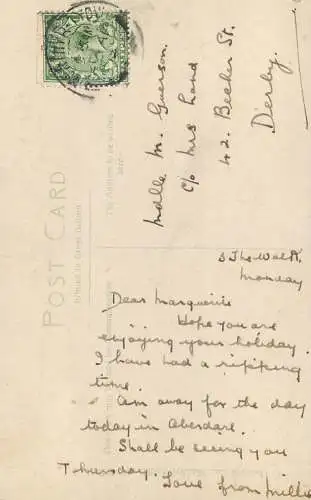 POST CARD
The Address to be written here
Mdlle M. Guerson.
c/o Mrs Land
42. Becker St.
Derby.
3 The Walk.
Monday
Dear Marguerite
Hope you are
enjoying your holiday.
I have had a ripping
time.
Am away for the day
today in Aberdare.
Shall be seeing you
Thursday. Love from Millie